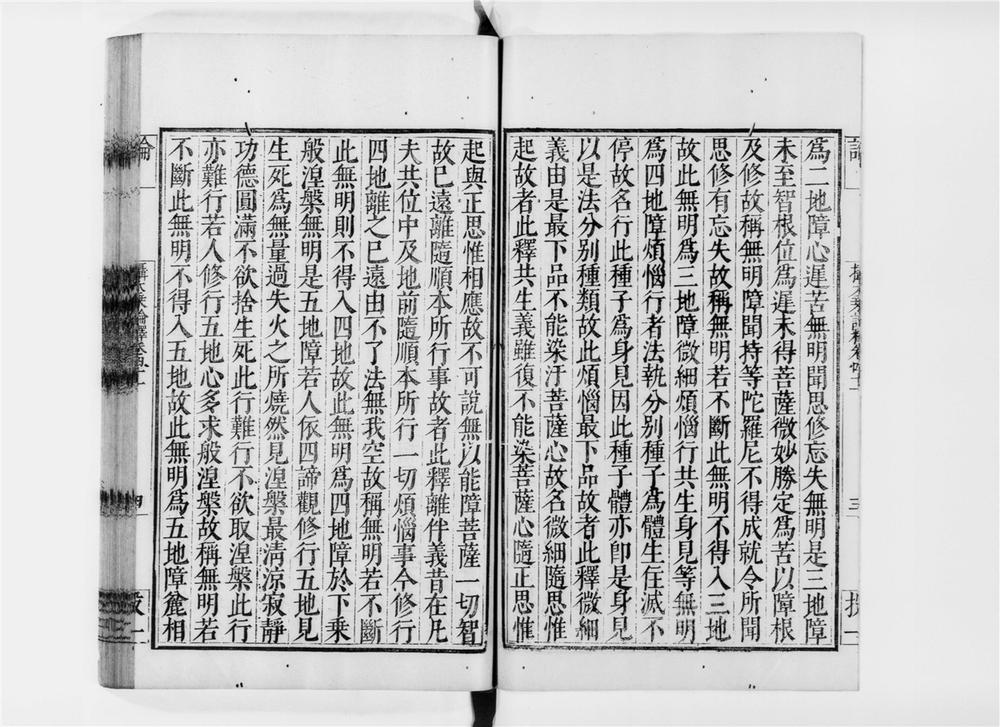 爲二地障心遲苦無明聞思修忘失無明是三地障
未至智根位爲遲未得菩薩微妙勝定爲苦以障根
及修故稱無明障聞持等陀羅尼不得成就令所聞
思修有忘失故稱無明若不斷此無明不得入三地
故此無明爲三地障微細煩惱行共生身見等無明
爲四地障煩惱行者法執分別種子爲體生住滅不
停故名行此種子爲身見因此種子體亦卽是身見
以是法分別種類故此煩惱最下品故者此釋微細
義由是最下品不能染汙菩薩心故名微細隨思惟
起故者此釋共生義雖復不能染菩薩心隨正思惟
起與正思惟相應故不可說無以能障菩薩一切智
故已遠離隨順本所行事故者此釋離伴義昔在凡
夫共位中及地前隨順本所行一切煩惱事今修行
四地離之已遠由不了法無我空故稱無明若不斷
此無明則不得入四地故此無明爲四地障於下乘
般涅槃無明是五地障若人依四諦觀修行五地見
生死爲無量過失火之所燒然見涅槃最清涼寂靜
功德圓滿不欲捨生死此行難行不欲取涅槃此行
亦難行若人修行五地心多求般涅槃故稱無明若
不斷此無明不得入五地故此無明爲五地障麄相